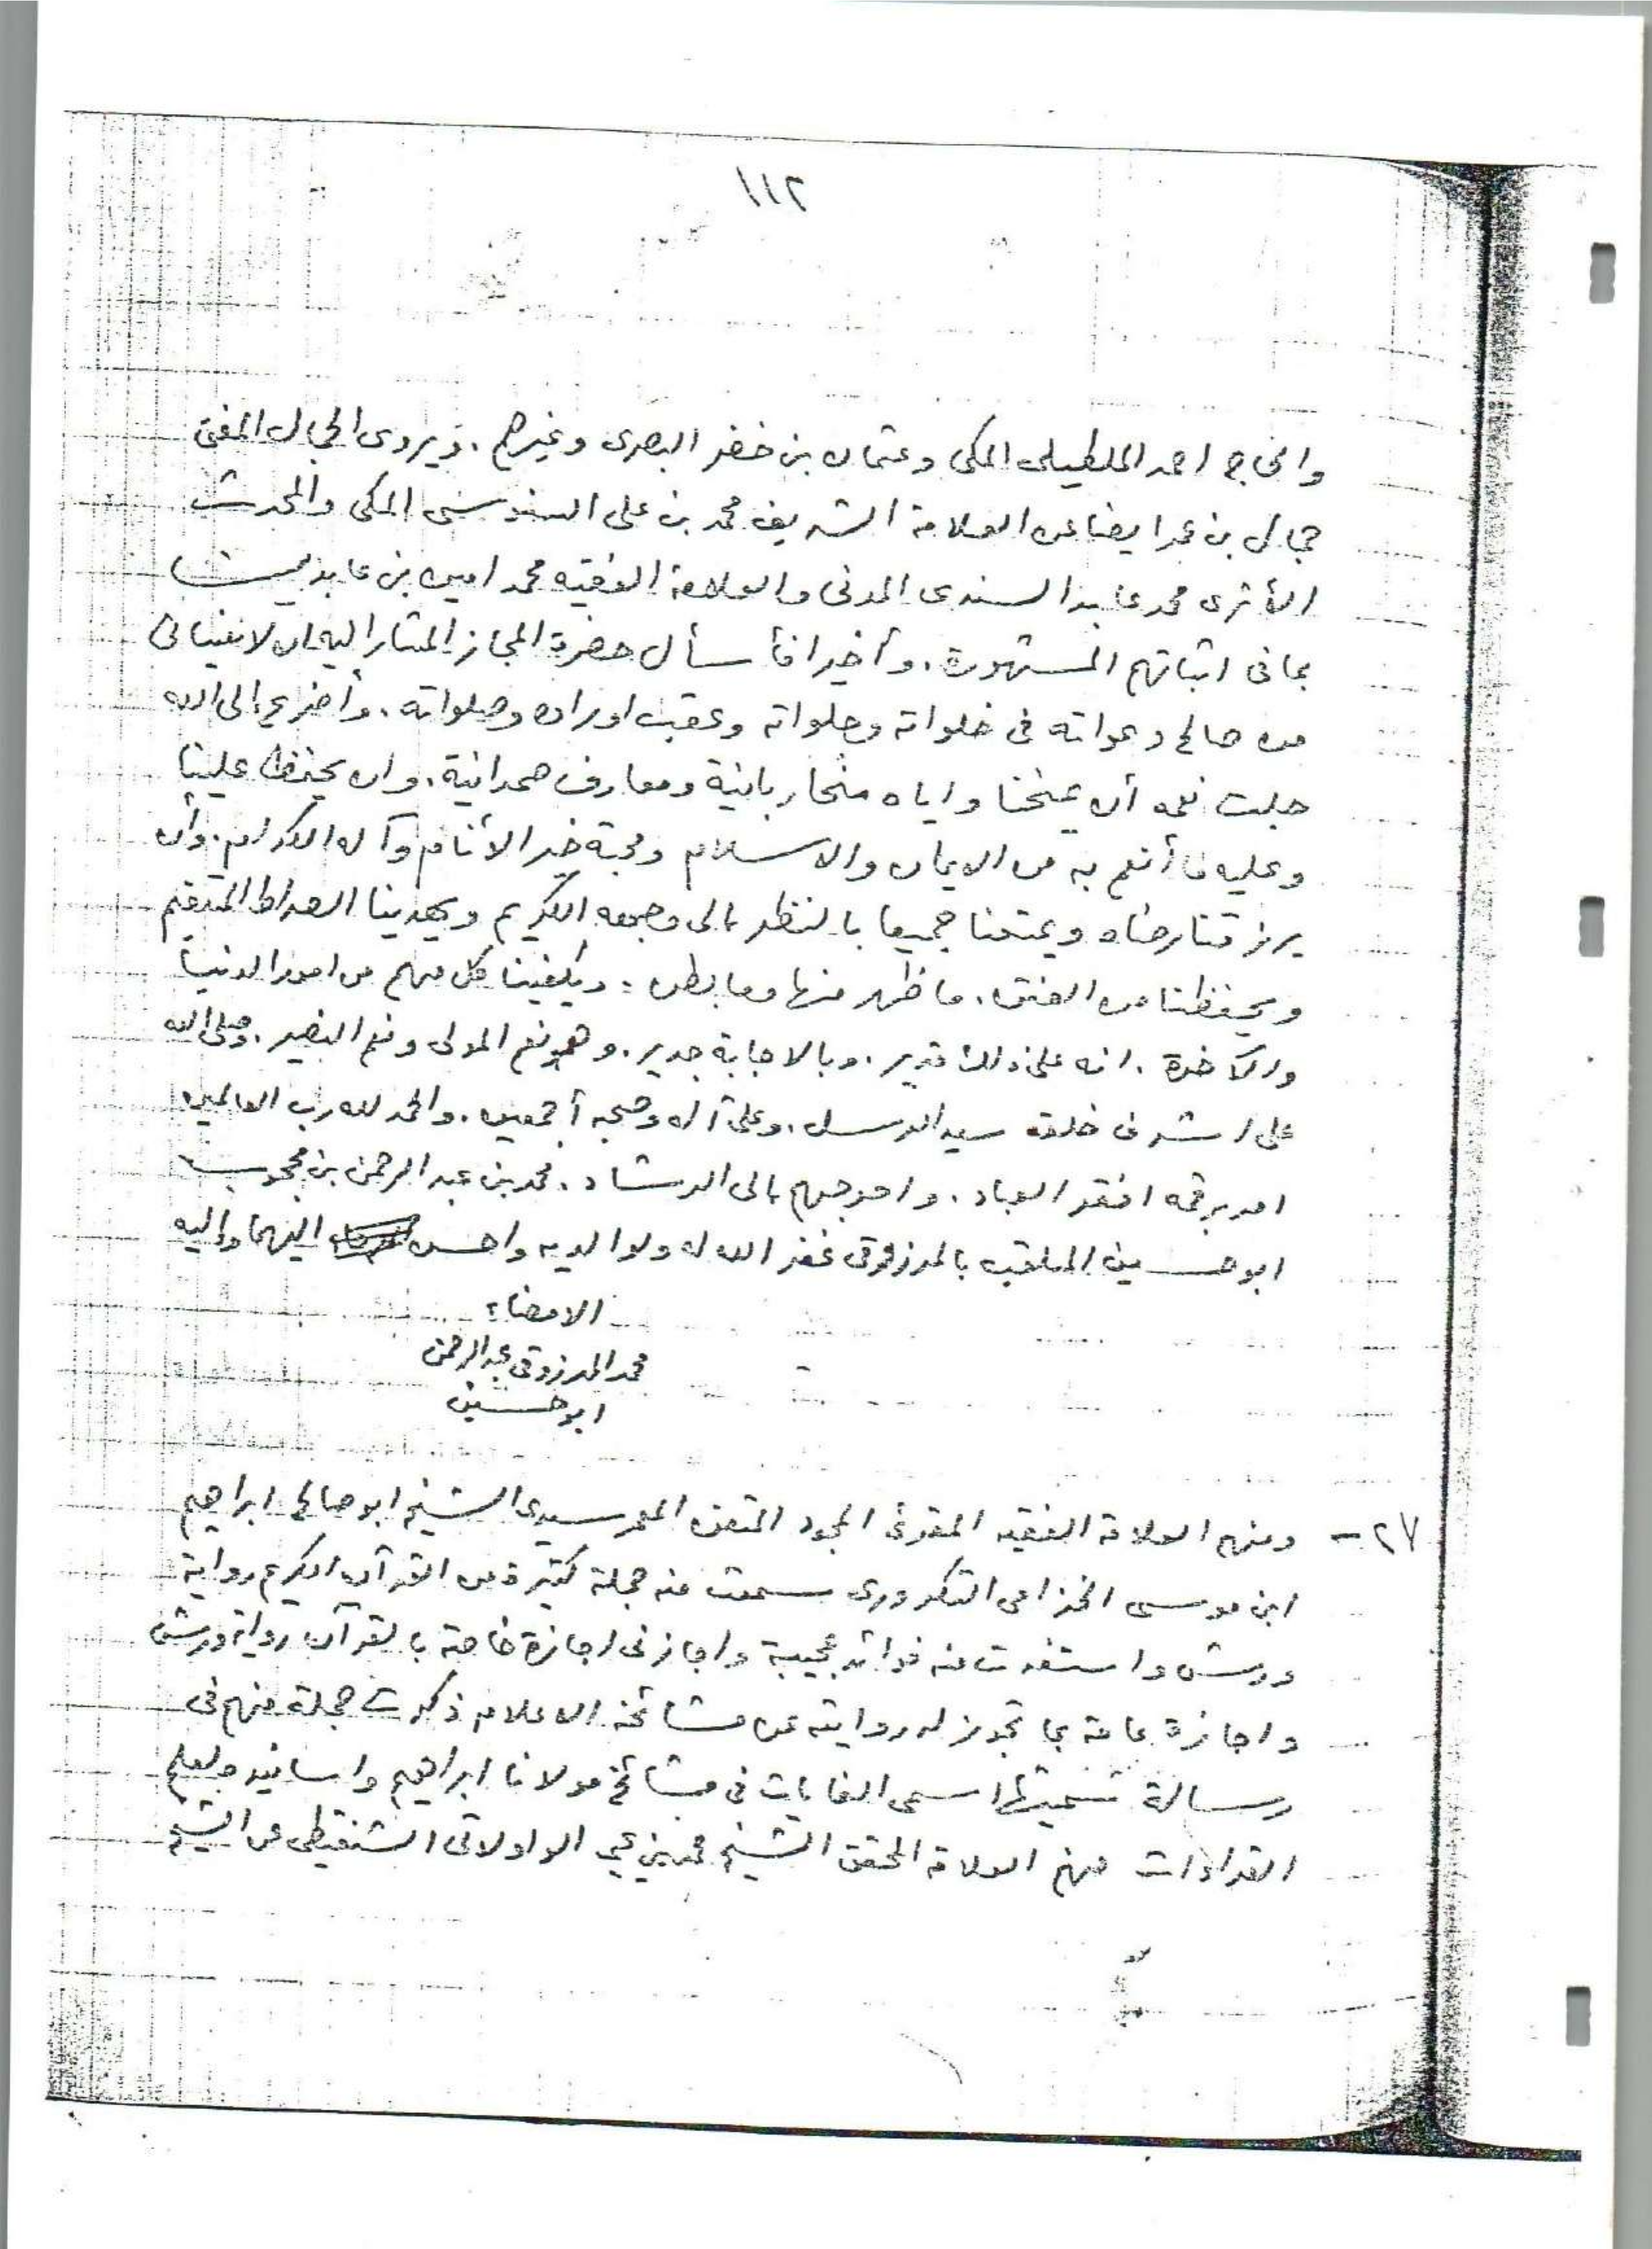 ١١٢
والحاج احمد الملطيلى المكى وعثمان بن خضر البصرى وغيرهم. ويروى الجمال المفتى
جمال بن عمر ايضا عن العلامة الشريف محمد بن على السنوسى المكى والمحدث
الأثرى محمد عابد السندى المدنى والعلامة الفقيه محمد امين بن عابدين
بما فى اثباتهم المشهورة. وأخيرا فأسأل حضرة المجاز المشار اليه ان لا ينسانى
من صالح دعواته فى خلواته وجلواته وعقب اوراده وصلواته. وأضرع الى الله
جلت نعمه أن يمنحنا واياه منحا ربانية ومعارف صمدانية. وان يحفظ علينا
وعليه ما أنعم به من الايمان والاسلام ومحبة خير الأنام وآله الكرام. وأن
يرزقنا رضاه ويمتعنا جميعا بالنظر الى وجهه الكريم ويهدينا الصراط المستقيم
ويحفظنا من الفتن. ما ظهر منها وما بطن. ويكفينا كل مهم من امور الدنيا
والآخرة. انه على ذلك قدير. وبالاجابة جدير. وهو نعم المولى ونعم النصير. وصلى الله
على اشرف خلقه سيد الرسل. وعلى آله وصحبه أجمعين. والحمد لله رب العالمين
امر برقمه افقر العباد. واحوجهم الى الرشاد. محمد بن عبد الرحمن بن محجوب
ابو حسين الملقب بالمرزوقى غفر الله له ولوالديه واحسن اليهما واليه
الامضاء:
محمد المرزوقى عبد الرحمن
ابو حسين
٢٧ - ومنهم العلامة الفقيه المقرئ المجود المتقن المعمر سيدى الشيخ ابو صالح ابراهيم
ابن موسى الخزامى التكرورى سمعت منه جملة كثيرة من القرآن الكريم رواية
ورش واستفدت منه فوائد عجيبة واجازنى اجازة خاصة بالقرآن رواية ورش
واجازة عامة بما تجوز له روايته عن مشائخه الاعلام ذكرت جملة منهم فى
رسالة سميتها اسمى الغايات فى مشائخ مولانا ابراهيم واسانيده بعلم
القراءات منهم العلامة المحقق الشيخ محمد يحيى الولاتى الشنقيطى عن الشيخ